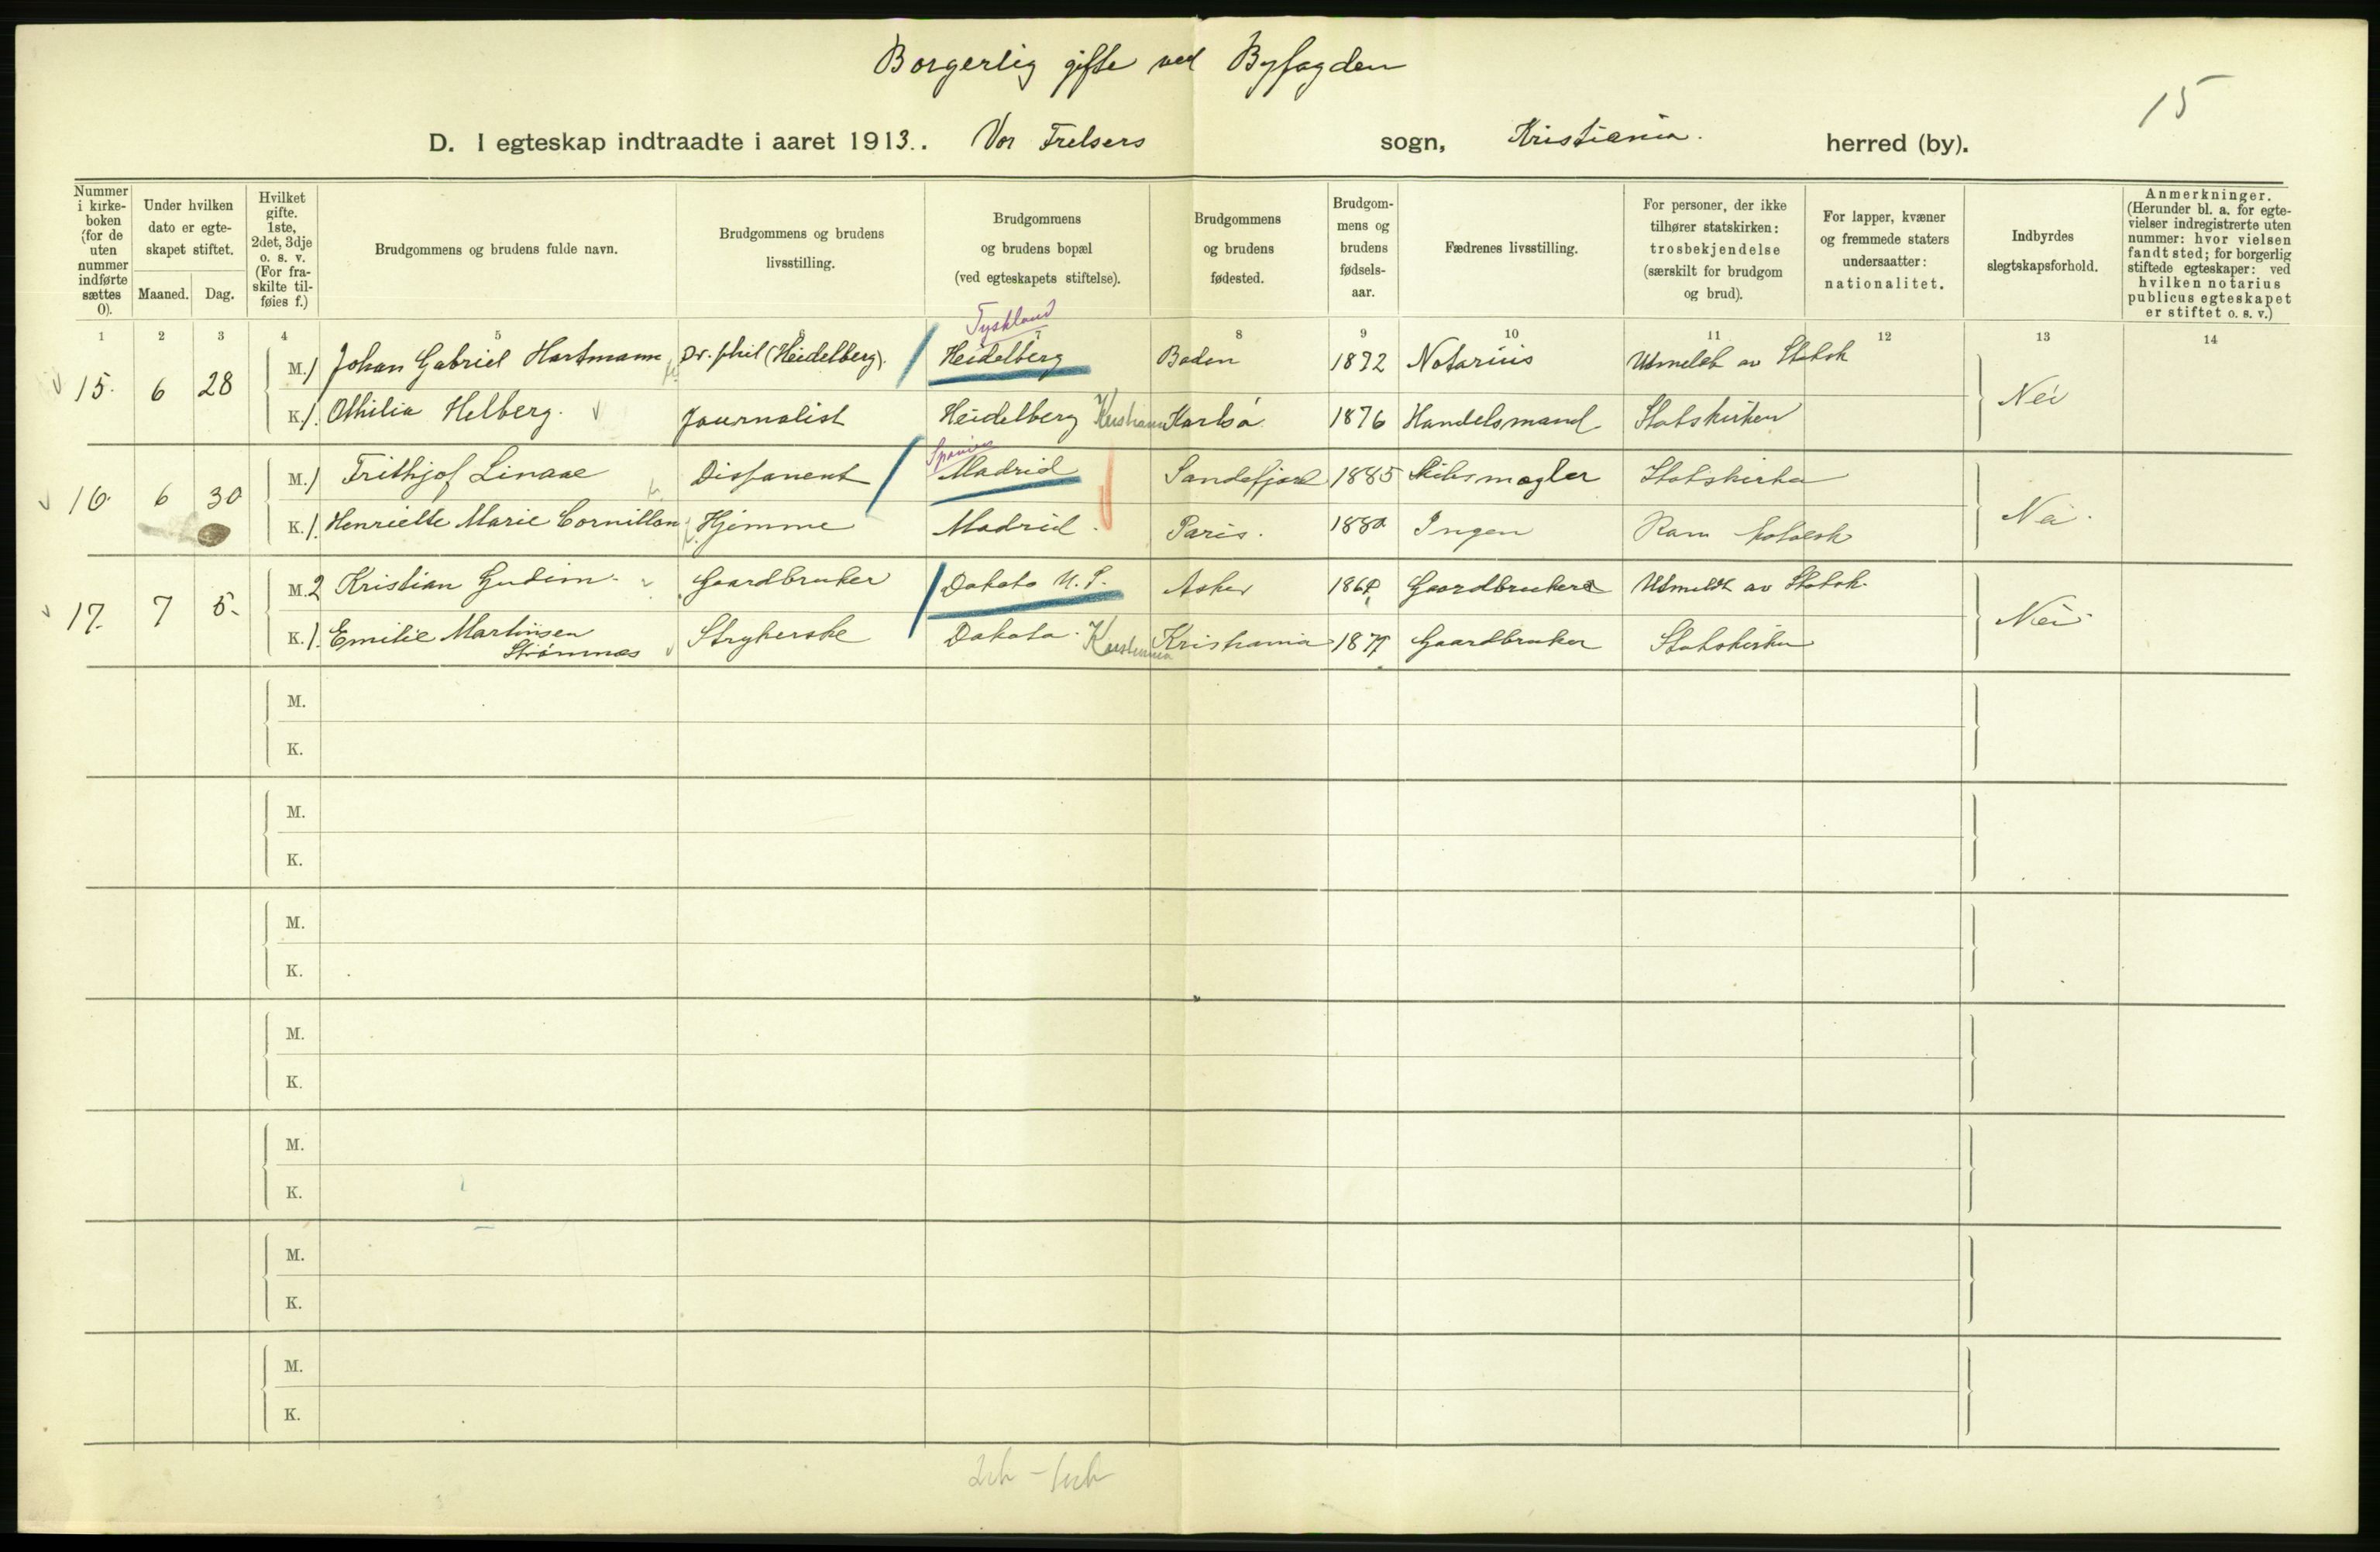 Borgerlig gifte ved Byfogden
15
D. I egteskap indtraadte i aaret 1913. Vor Frelsers sogn, Kristiania. herred (by).
Nummer i kirkeboken (for de uten nummer indførte sættes 0).
Under hvilken dato er egteskapet stiftet.
Maaned. Dag.
Hvilket gifte. 1ste, 2det, 3dje o. s. v. (For fraskilte tilføies f.)
Brudgommens og brudens fulde navn.
Brudgommens og brudens livsstilling.
Brudgommens og brudens bopæl (ved egteskapets stiftelse).
Brudgommens og brudens fødested.
Brudgommens og brudens fødselsaar.
Fædrenes livsstilling.
For personer, der ikke tilhører statskirken: trosbekjendelse (særskilt for brudgom og brud).
For lapper, kvæner og fremmede staters undersaatter: nationalitet.
Indbyrdes slegtskapsforhold.
Anmerkninger. (Herunder bl. a. for egtevielser indregistrerte uten nummer: hvor vielsen fandt sted; for borgerlig stiftede egteskaper: ved hvilken notarius publicus egteskapet er stiftet o. s. v.)
1 2 3 4 5 6 7 8 9 10 11 12 13 14
Tyskland
15. 6 28 M. 1 Johan Gabriel Hartmann Dr. phil (Heidelberg). Heidelberg Baden Notarius Utmeldt av Statsk Nei
K. 1. Othilia Helberg. Journalist Heidelberg Kristiania Karlsö 1876 Handelsmand Statskirken
Spanien
16. 6 30 M. 1 Frithjof Linaae Disponent Madrid Sandefjord 1885 Skibsmægler Statskirken Nei.
K. 1. Henriette Marie Cornillon Hjemme Madrid. Paris. Ingen Rom. katolsk
17. 7 5. M. 2 Kristian Gudim. Gaardbruker Dakota U.S. Asker Gaardbruker Utmeldt av Statsk. Nei
K. 1. Emilie Martinsen Strømnæs Strykerske Dakota. Kristiania Kristiania Gaardbruker Statskirken
M.
K.
M.
K.
M.
K.
M.
K.
M.
K.
M.
K.
M.
K.